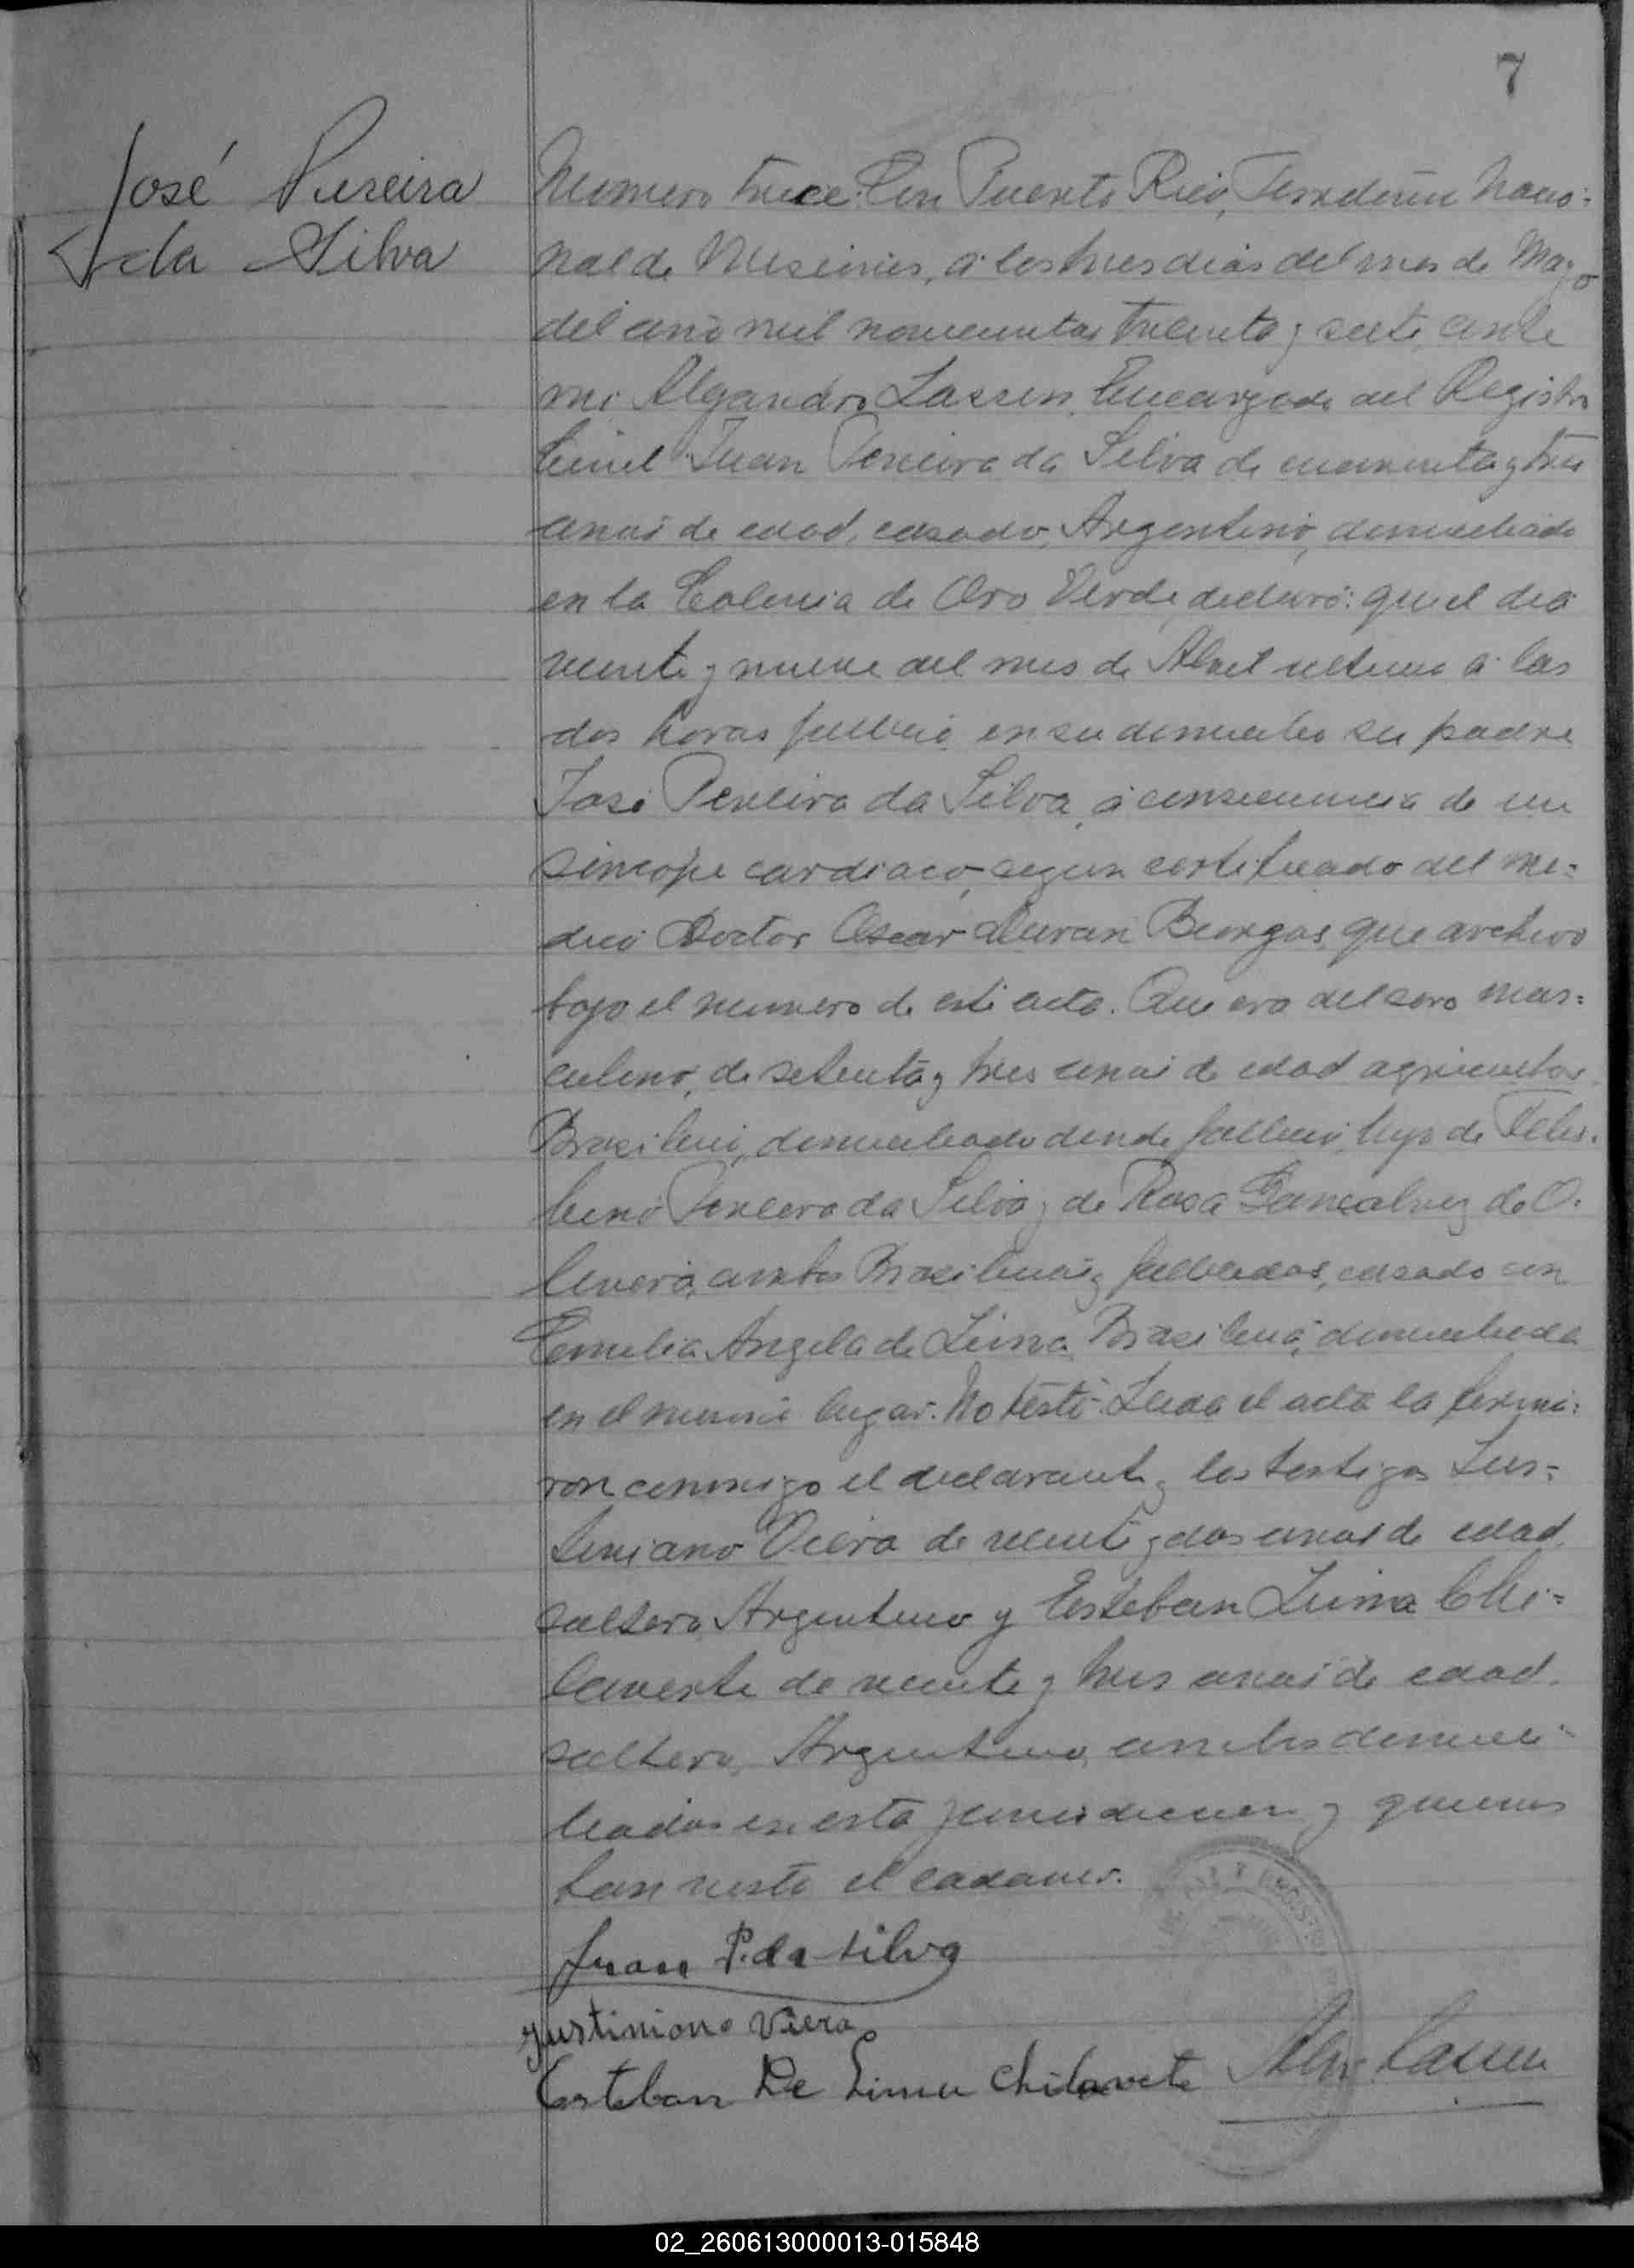 7
José Pereira
da Silva
Numero trece. En Puerto Rico, Territorio Nacio=
nal de Misiones, a los tres dias del mes de Mayo
del año mil novecientos treinta y siete, ante
mi Alejandro Lassen, Encargado del Registro
Civil Juan Pereira da Silva de cuarenta y tres
anos de edad, casado, Argentino, domiciliado
en la Colonia de Oro Verde, declaró: que el dia
veinte y nueve del mes de Abril ultimo a las
dos horas falleció en su domicilio su padre
José Pereira da Silva, a consecuencia de un
sincope cardiaco, segun certificado del me=
dico Doctor Oscar Duran que archivo
bajo el numero de este acta. Que era del sexo mas=
culino, de setenta y tres anos de edad agricultor
Brasilero, domiciliado donde falleció, hijo de
Pereira da Silva y de Rosa Gonsalvez de O.
liveira, ambos Brasileros y fallecidos, casado con
Emelia Angela de Lima, Brasilera, domiciliada
en el mismo lugar. No testó. Leida el acta la firma=
ron conmigo el declarante y los testigos Jus=
tiniano Viera de veinte y dos anos de edad
soltero Argentino y Esteban Lima Chi=
laverte de veinte y tres anos de edad.
soltero, Argentino, ambos domici=
liados en esta jurisdiccion y quienes
han visto el cadaver.
Juan P. da Silva
Justiniano Viera
Esteban De Lima Chilavete Alej. Lassen
02_260613000013-015848